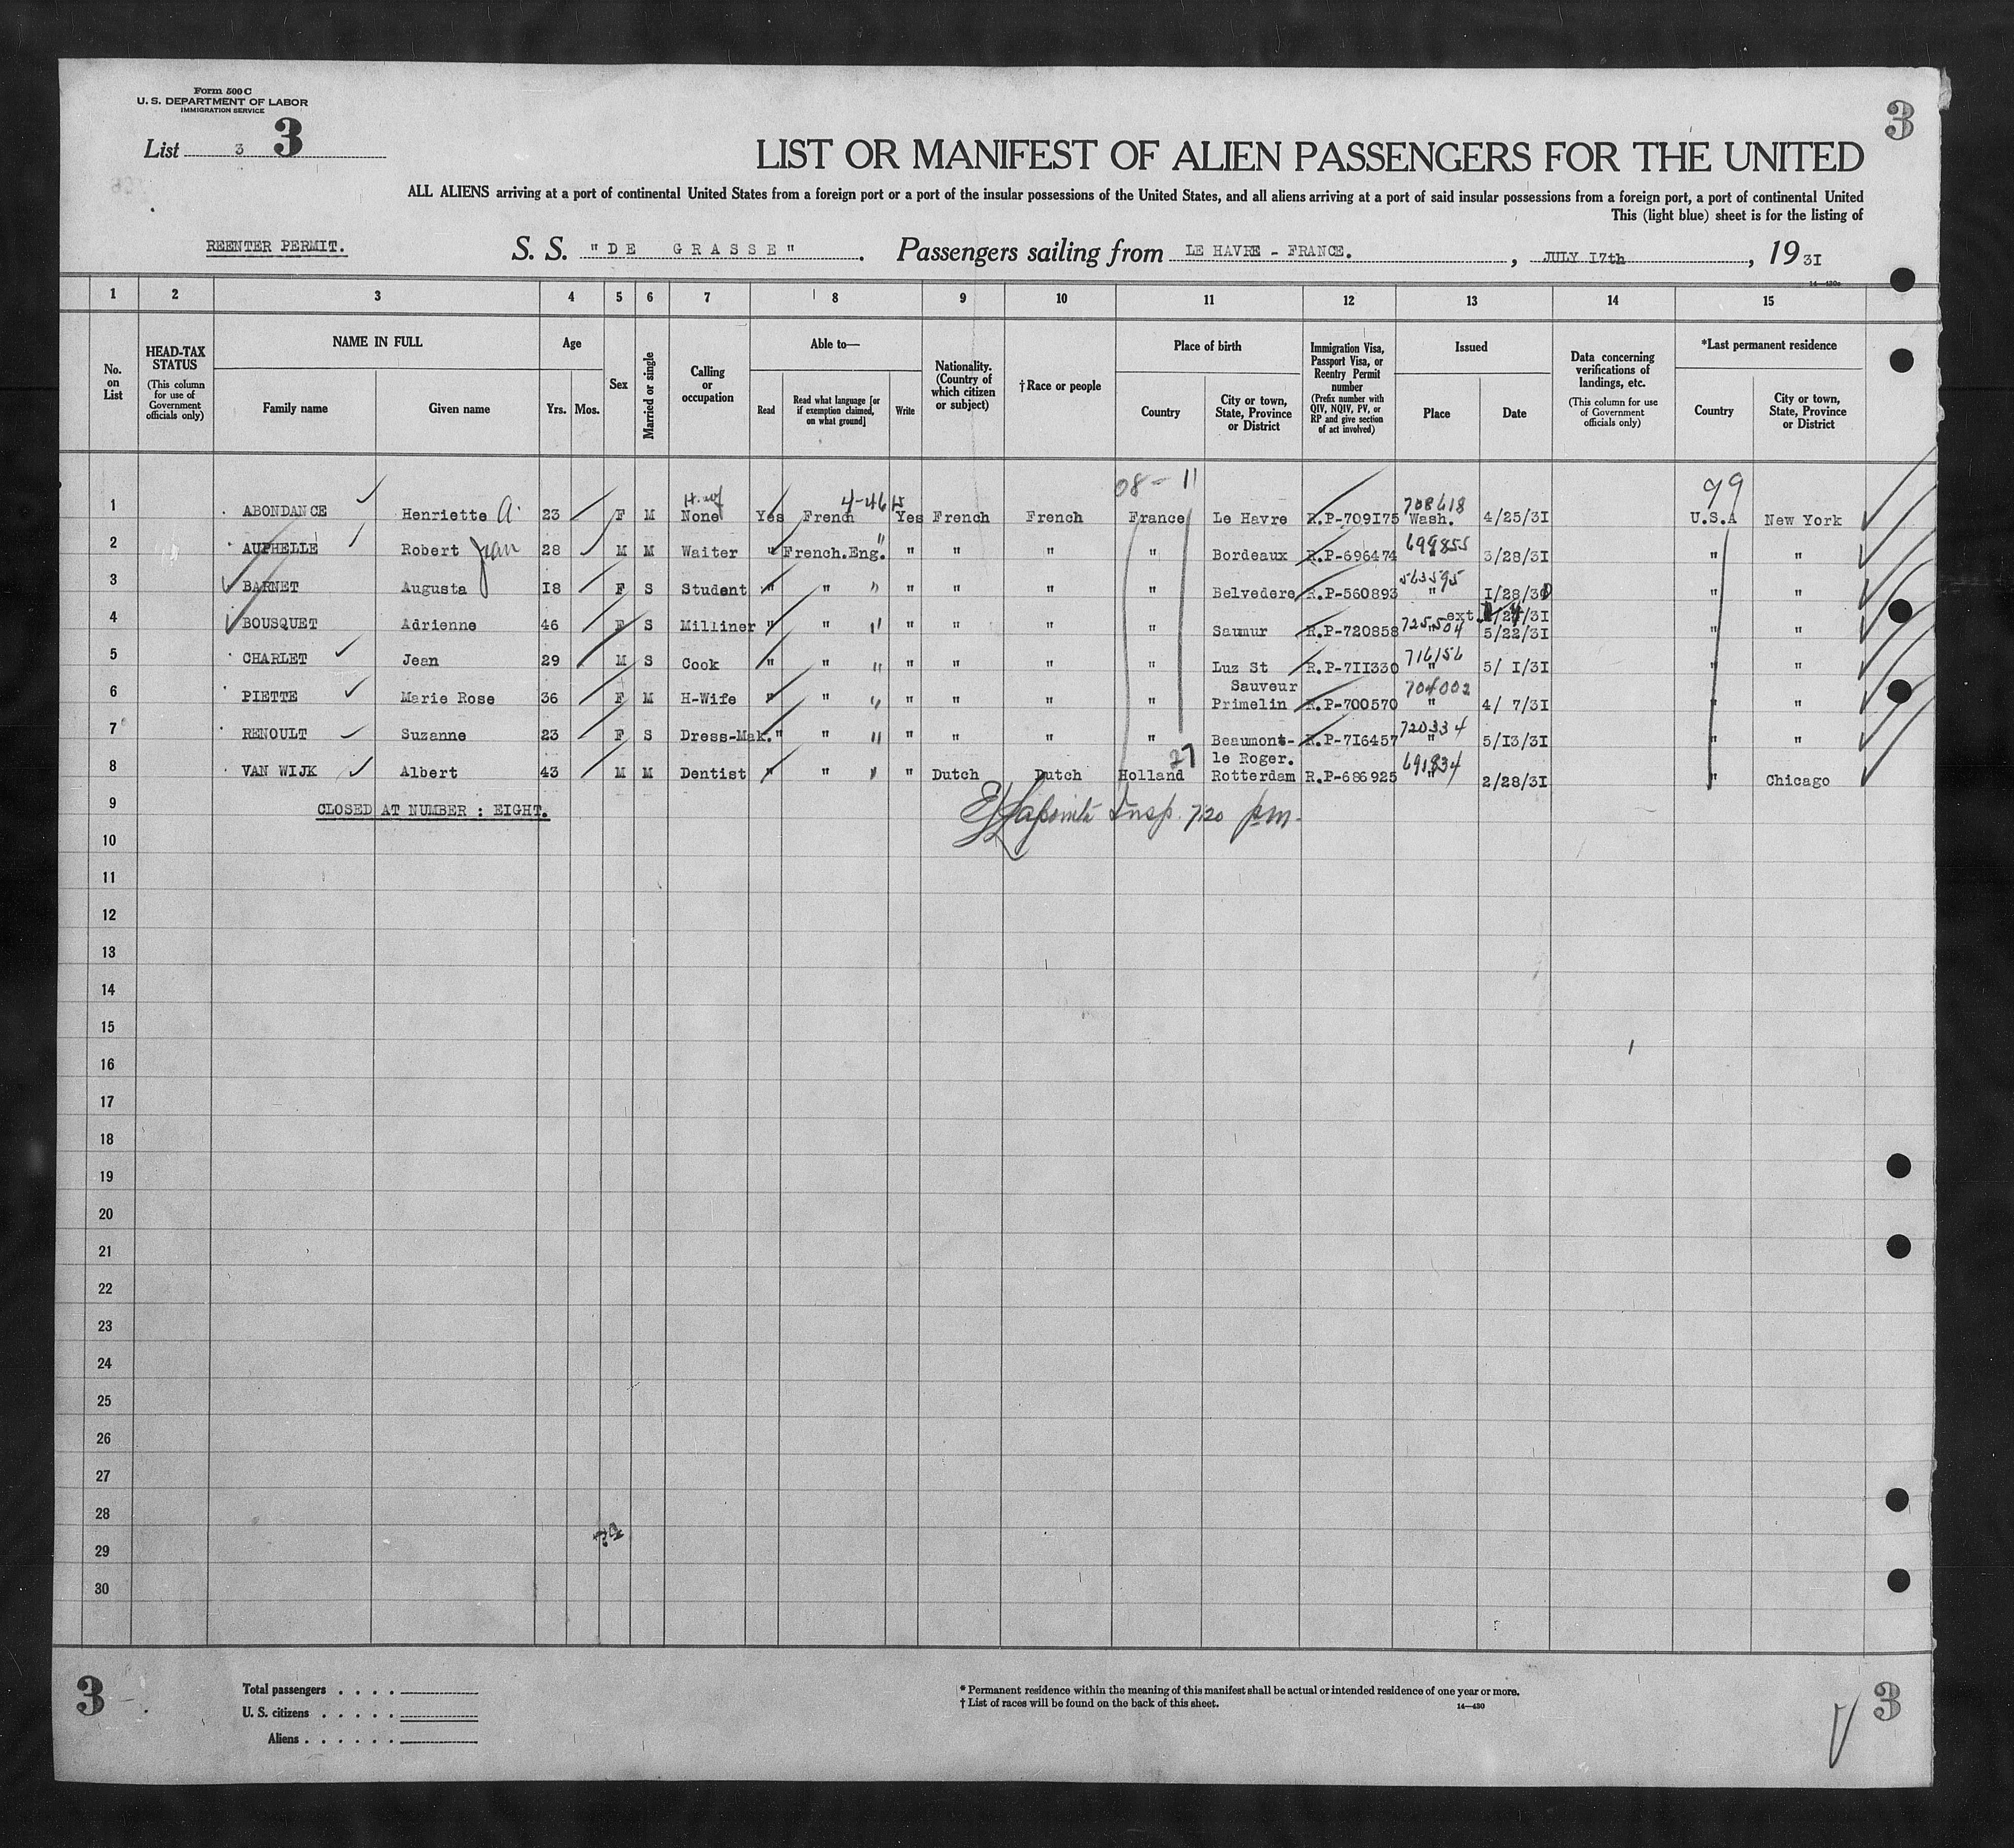 Form 500 C
U. S. DEPARTMENT OF LABOR
IMMIGRATION SERVICE
List 3 3
3
LIST OR MANIFEST OF ALIEN PASSENGERS FOR THE UNITED
ALL ALIENS arriving at a port of continental United States from a foreign port or a port of the insular possessions of the United States, and all aliens arriving at a port of said insular possessions from a foreign port, a port of continental United
This (light blue) sheet is for the listing of
REENTER PERMIT. S. S. "DE GRASSE". Passengers sailing from LE HAVRE - FRANCE. , JULY I7th , 19 3I
14—430a
1 2 3 4 5 6 7 8 9 10 11 12 13 14 15
No. on List
HEAD-TAX STATUS (This column for use of Government officials only)
NAME IN FULL Family name Given name
Age Yrs. Mos.
Sex
Married or single
Calling or occupation
Able to— Read Read what language [or if exemption claimed, on what ground] Write
Nationality. (Country of which citizen or subject)
† Race or people
Place of birth Country City or town, State, Province or District
Immigration Visa, Passport Visa, or Reentry Permit number (Prefix number with QIV, NQIV, PV, or RP and give section of act involved)
Issued Place Date
Data concerning verifications of landings, etc. (This column for use of Government officials only)
*Last permanent residence Country City or town, State, Province or District
H.wf 4-46 08 - 11 708618 99
1 ABONDANCE Henriette A. 23 F M None Yes French Yes French French France Le Havre R.P-709I75 Wash. 4/25/3I U.S.A New York
2 AUPHELLE Robert Jean 28 M M Waiter " French.Eng. " " " " " Bordeaux R.P-696474 699855 3/28/3I " "
3 BARNET Augusta I8 F S Student " " " " " " " Belvedere R.P-560893 563595 " I/28/30 " "
ext. /3I
4 BOUSQUET Adrienne 46 F S Milliner " " " " " " " Saumur R.P-720858 725504 " 5/22/3I " "
5 CHARLET Jean 29 M S Cook " " " " " " " Luz St R.P-7II330 716156 " 5/ I/3I " "
Sauveur
6 PIETTE Marie Rose 36 F M H-Wife " " " " " " " Primelin R.P-700570 704002 " 4/ 7/3I " "
7 RENOULT Suzanne 23 F S Dress-Mak. " " " " " " " Beaumont- R.P-7I6457 720334 " 5/I3/3I " "
27 le Roger.
8 VAN WIJK Albert 43 M M Dentist " " " " Dutch Dutch Holland Rotterdam R.P-686925 691834 " 2/28/3I " Chicago
9 CLOSED AT NUMBER : EIGHT. Insp. 7:20 pm.
10
11
12
13
14
15
16
17
18
19
20
21
22
23
24
25
26
27
28
29
30
3
Total passengers . . . .
U. S. citizens . . . . .
Aliens . . . . . .
* Permanent residence within the meaning of this manifest shall be actual or intended residence of one year or more.
† List of races will be found on the back of this sheet.
14—430
3